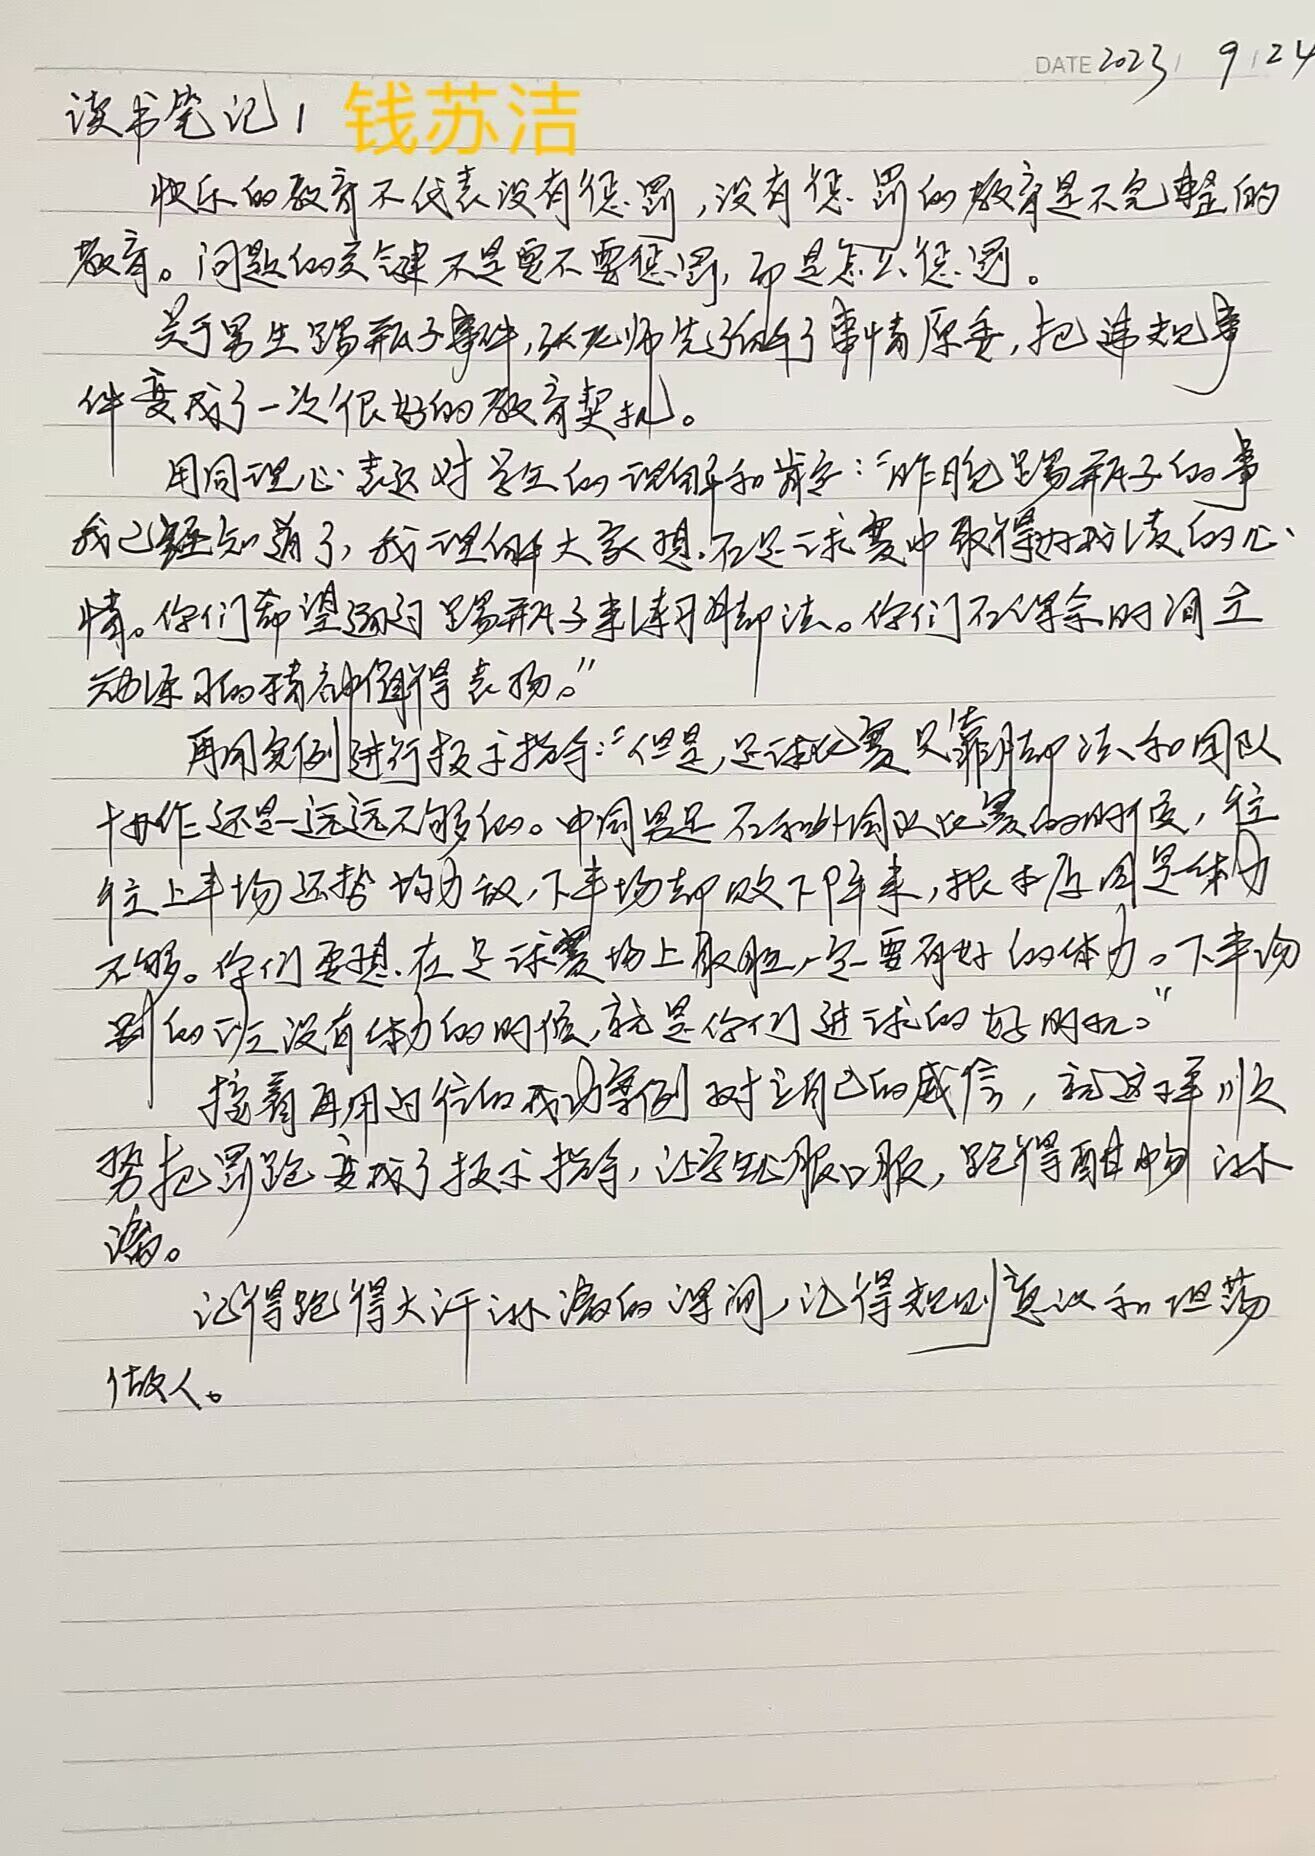 DATE 2023 / 9 / 24
读书笔记1 钱苏洁
快乐的教育不代表没有惩罚，没有惩罚的教育是不完整的
教育。问题的关键不是要不要惩罚，而是怎么惩罚。
关于男生踢瓶子事件，张老师先了解了事情原委，把违规事
件变成了一次很好的教育契机。
用同理心表达对学生的理解和肯定：“昨晚踢瓶子的事
我已经知道了，我理解大家想在足球赛中取得好成绩的心
情。你们希望通过踢瓶子来练习脚法。你们在课余时间主
动练习的精神值得表扬。”
再用实例进行技术指导：“但是，足球比赛只靠脚法和团队
协作还是远远不够的。中国男足在和外国队比赛的时候，往
往上半场还势均力敌，下半场却败下阵来，根本原因是体力
不够。你们要想在足球赛场上取胜，一定要有好的体力。下半场
别的班没有体力的时候，就是你们进球的好时机。”
接着再用过往的成功案例树立自己的威信，就这样顺
势把罚跑变成了技术指导，让学生心服口服，跑得酣畅淋
漓。
记得跑得大汗淋漓的瞬间，记得规则意识和坦荡
做人。